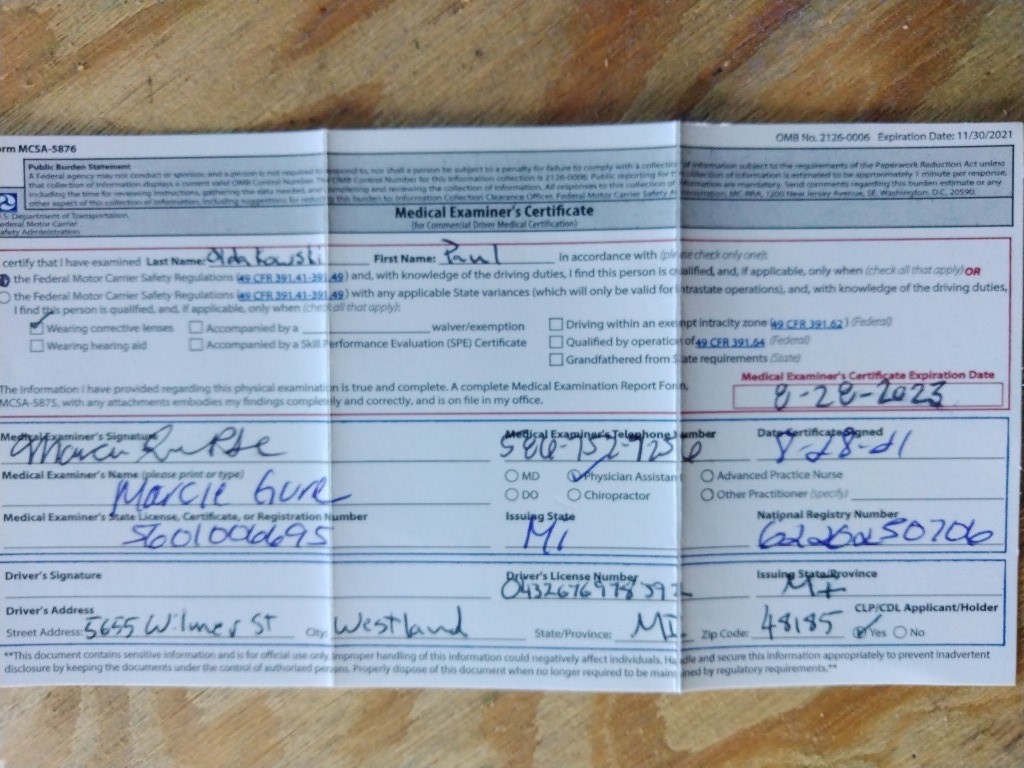 orm MCSA-5876 OMB No. 2126-0006 Expiration Date: 11/30/2021
Public Burden Statement
A Federal agency may not conduct or sponsor, and a person is not required to respond to, nor shall a person be subject to a penalty for failure to comply with a collection of information subject to the requirements of the Paperwork Reduction Act unless
that collection of information displays a current valid OMB Control Number. The OMB Control Number for this information collection is 2126-0006. Public reporting for this collection of information is estimated to be approximately 1 minute per response,
including the time for reviewing instructions, gathering the data needed, and completing and reviewing the collection of information. All responses to this collection of information are mandatory. Send comments regarding this burden estimate or any
other aspect of this collection of information, including suggestions for reducing this burden to: Information Collection Clearance Officer, Federal Motor Carrier Safety Administration, MC-RRA, 1200 New Jersey Avenue, SE, Washington, D.C. 20590.
U.S. Department of Transportation
Federal Motor Carrier
Safety Administration
Medical Examiner's Certificate
(for Commercial Driver Medical Certification)
certify that I have examined Last Name: First Name: Paul in accordance with (please check only one):
the Federal Motor Carrier Safety Regulations (49 CFR 391.41-391.49) and, with knowledge of the driving duties, I find this person is qualified, and, if applicable, only when (check all that apply) OR
the Federal Motor Carrier Safety Regulations (49 CFR 391.41-391.49) with any applicable State variances (which will only be valid for intrastate operations), and, with knowledge of the driving duties,
I find this person is qualified, and, if applicable, only when (check all that apply):
Wearing corrective lenses Accompanied by a waiver/exemption Driving within an exempt intracity zone (49 CFR 391.62) (Federal)
Wearing hearing aid Accompanied by a Skill Performance Evaluation (SPE) Certificate Qualified by operation of 49 CFR 391.64 (Federal)
Grandfathered from State requirements (State)
The information I have provided regarding this physical examination is true and complete. A complete Medical Examination Report Form,
MCSA-5875, with any attachments embodies my findings completely and correctly, and is on file in my office.
Medical Examiner's Certificate Expiration Date
8-28-2023
Medical Examiner's Signature Medical Examiner's Telephone Number Date Certificate Signed
586-752-7256 8-28-21
Medical Examiner's Name (please print or type) MD Physician Assistant Advanced Practice Nurse
Marcie DO Chiropractor Other Practitioner (specify)
Medical Examiner's State License, Certificate, or Registration Number Issuing State National Registry Number
5601006695 MI 6226250706
Driver's Signature Driver's License Number Issuing State/Province
MI
Driver's Address CLP/CDL Applicant/Holder
Street Address: 5655 Wilmer St City: Westland State/Province: MI Zip Code: 48185 Yes No
**This document contains sensitive information and is for official use only. Improper handling of this information could negatively affect individuals. Handle and secure this information appropriately to prevent inadvertent
disclosure by keeping the documents under the control of authorized persons. Properly dispose of this document when no longer required to be maintained by regulatory requirements.**